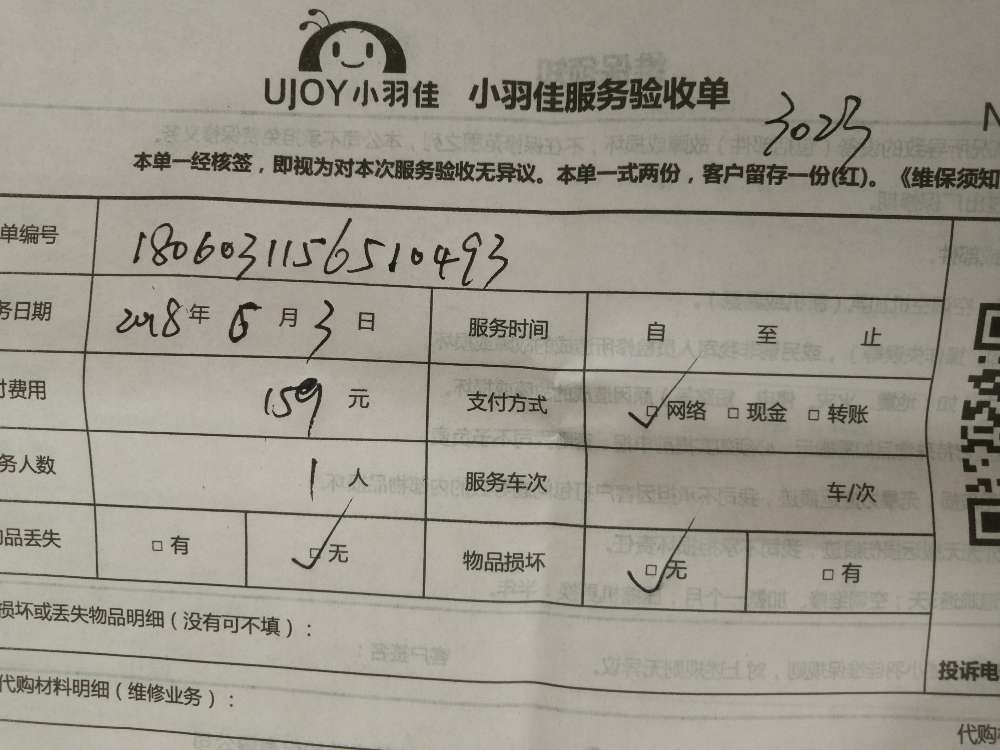 UJOY小羽佳 小羽佳服务验收单
3025
N
本单一经核签，即视为对本次服务验收无异议。本单一式两份，客户留存一份(红)。《维保须知
单编号 1806031156510493
务日期 2018年 6月 3日 服务时间 自 至 止
付费用 159元 支付方式 □网络 □现金 □转账
务人数 1人 服务车次 车/次
物品丢失 □有 □无 物品损坏 □无 □有
损坏或丢失物品明细（没有可不填）：
投诉电
代购材料明细（维修业务）：
代购